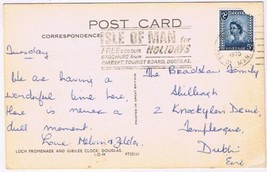 POST CARD
CORRESPONDENCE
ISLE OF MAN for
FREE colour HOLIDAYS
BROCHURE from
DEPT. TOURIST BOARD, DOUGLAS.
Tuesday
We are having a
wonderful time here.
There is never a
dull moment.
Love Melvin & Zelda.
The Bradshaw Family
2 Knocklyon
Templeogue,
Dublin
Eire
LOCH PROMENADE AND JUBILEE CLOCK, DOUGLAS
I.O.M.